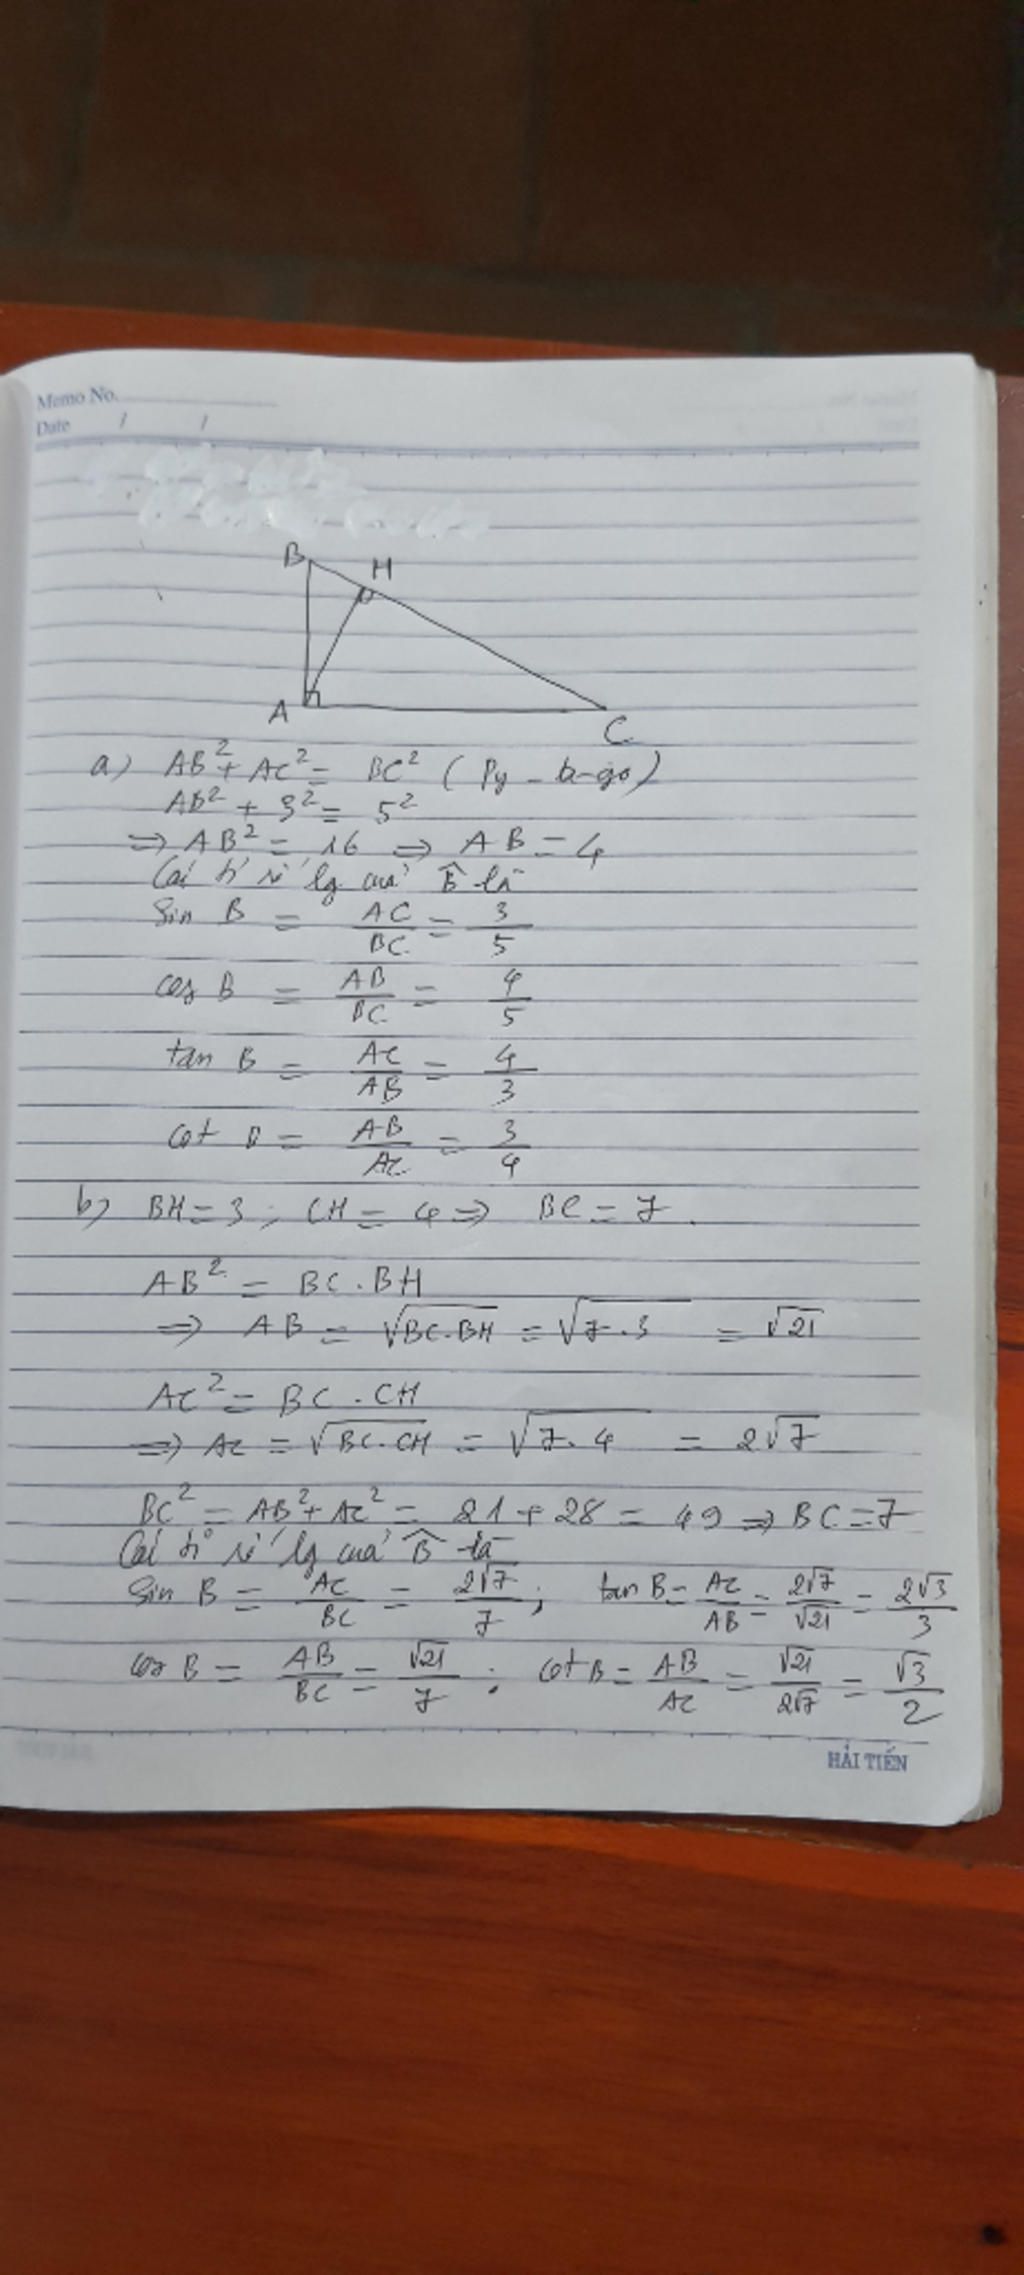 Memo No.
Date / /
B H
A C
a) AB² + AC² = BC² (Py-ta-go)
AB² + 3² = 5²
⇒ AB² = 16 ⇒ AB = 4
Các tỉ số lg của B̂ là
Sin B = AC/BC = 3/5
cos B = AB/BC = 4/5
tan B = AC/AB = 4/3
cot B = AB/AC = 3/4
b) BH = 3 ; CH = 4 ⇒ BC = 7.
AB² = BC . BH
⇒ AB = √BC.BH = √7.3 = √21
AC² = BC . CH
⇒ AC = √BC.CH = √7.4 = 2√7
BC² = AB² + AC² = 21 + 28 = 49 ⇒ BC = 7
Các tỉ số lg của B̂ là
Sin B = AC/BC = 2√7/7 ; tan B = AC/AB = 2√7/√21 = 2√3/3
cos B = AB/BC = √21/7 ; cot B = AB/AC = √21/2√7 = √3/2
HẢI TIẾN